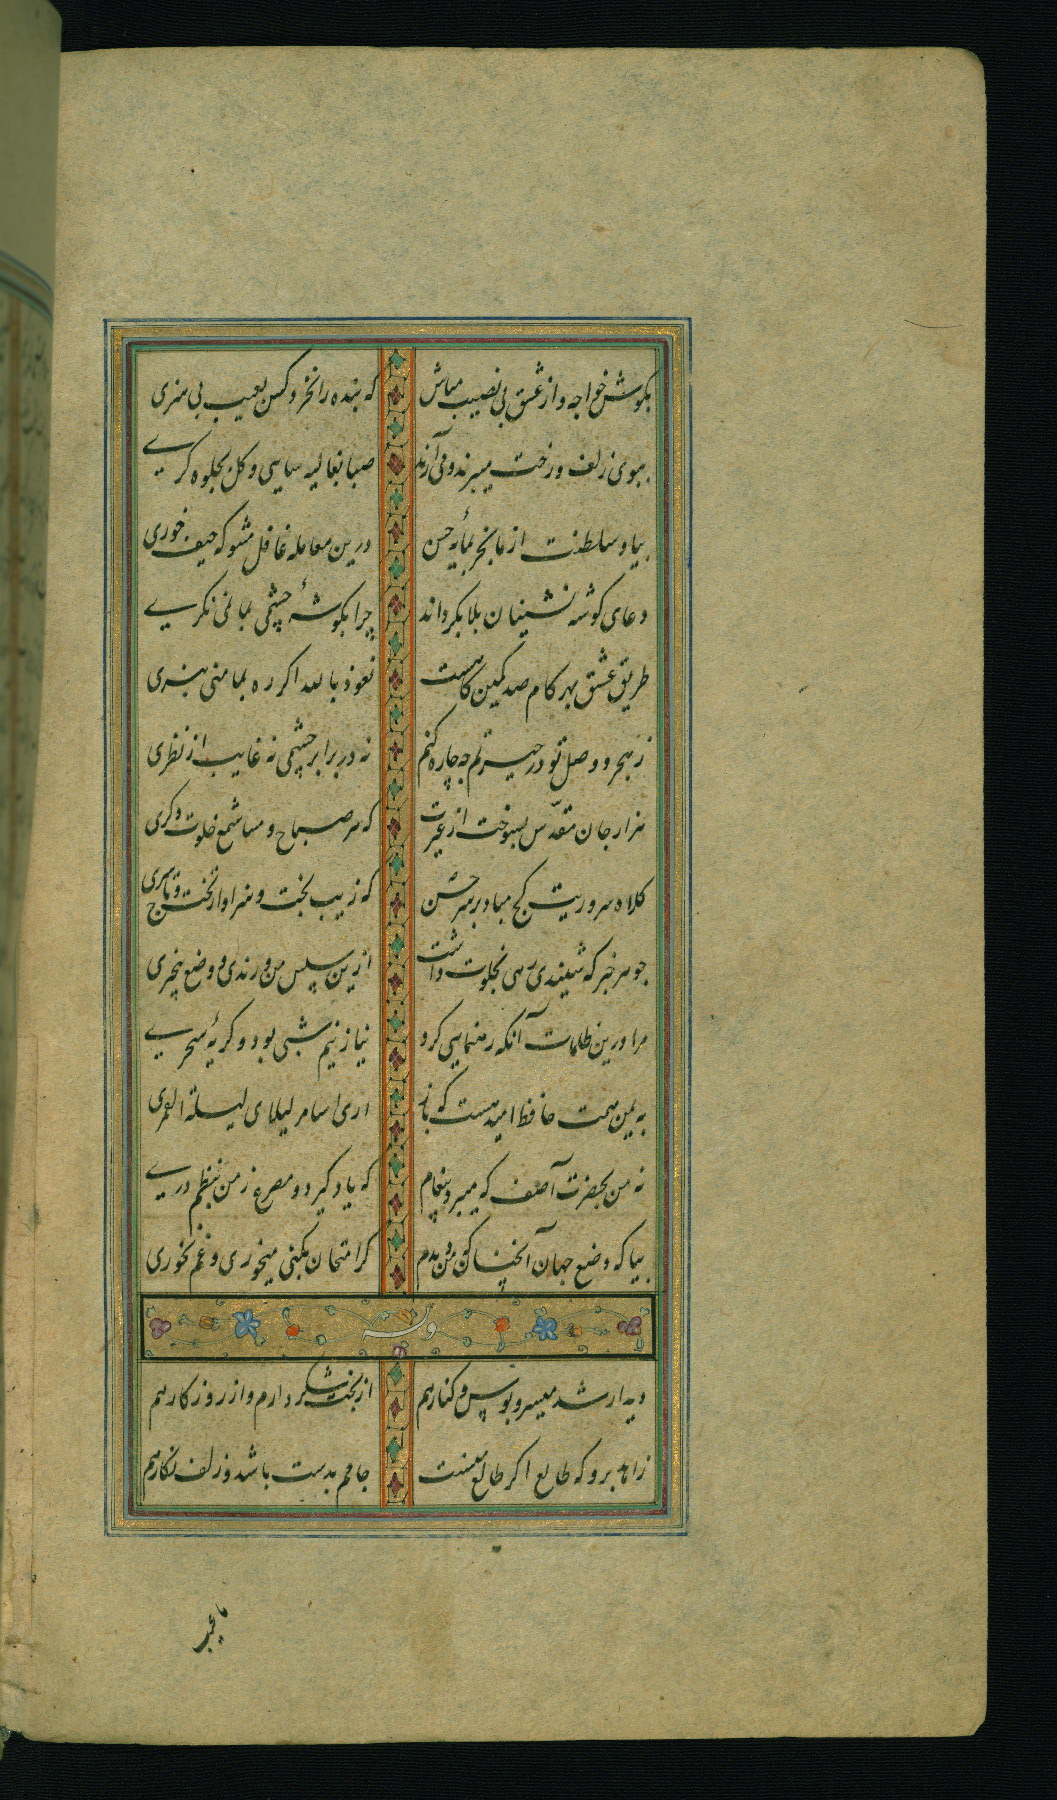 بکوش خواجه و از عشق بی نصیب مباش که بنده را نخرد کس بعیب بی هنری
ببوی زلف و رخت میبرند و می آرند صبا بغالیه سایی و کل بجلوه کری
بیا و سلطنت از ما بخر بمایهٔ حسن درین معامله غافل مشو که حیف خوری
دعای کوشه نشینان بلا بکرداند چرا بکوشهٔ چشمی بما نمی نکری
طریق عشق بهر کام صد کمین کاهست نعوذ بالله اکر ره بمامنی نبری
ز هجر و وصل تو در حیرتم چه چاره کنم نه در برابر چشمی نه غایب از نظری
هزار جان مقدّس بسوخت از غیرت که هر صباح و مسا شمع خلوت دکری
کلاه سروریت کج مباد بر سر حسن که زیب بخت و سزاوار تخت و تاج سری
چو هر خبر که شنیدی رهی بخلوت داشت ازین سپس من و رندی و وضع بیخبری
مرا درین ظلمات آنکه رهنمایی کرد نیاز نیم شبی بود و کریهٔ سحری
به یمن همت حافظ امید هست که باز اری اسامر لیلای لیلة القمری
ز من بحضرت آصف که میبرد پیغام که یاد کیرد دو مصرع ز من بنظم دری
بیا که وضع جهان آنچنانکه من دیدم کر امتحان بکنی میخوری و غم نخوری
وله
دیدار شد میسر و بوس و کنار هم از بخت شکر دارم و از روزکار هم
زاهد برو که طالع اکر طالع منست جامم بدست باشد و زلف نکار هم
ما عیب